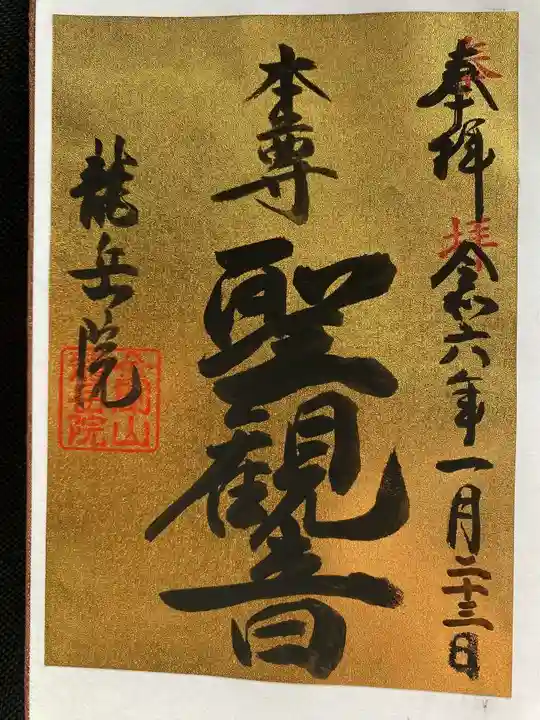 奉拝 令和六年一月二十三日
奉拝
本尊
聖観音
龍岳院